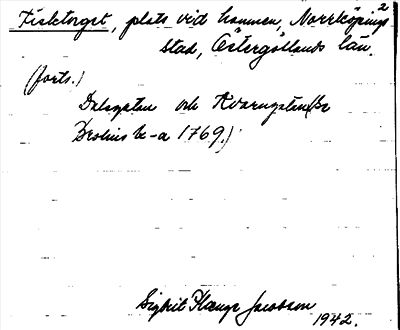 2
Fisktorget, plats vid hamnen, Norrköpings
stad, Östergötlands län.
(forts.)
Dalsgatan och Kvarngatan (se
Brolins k-a 1769.)
Sigbrit Plænge Jacobson
1942.